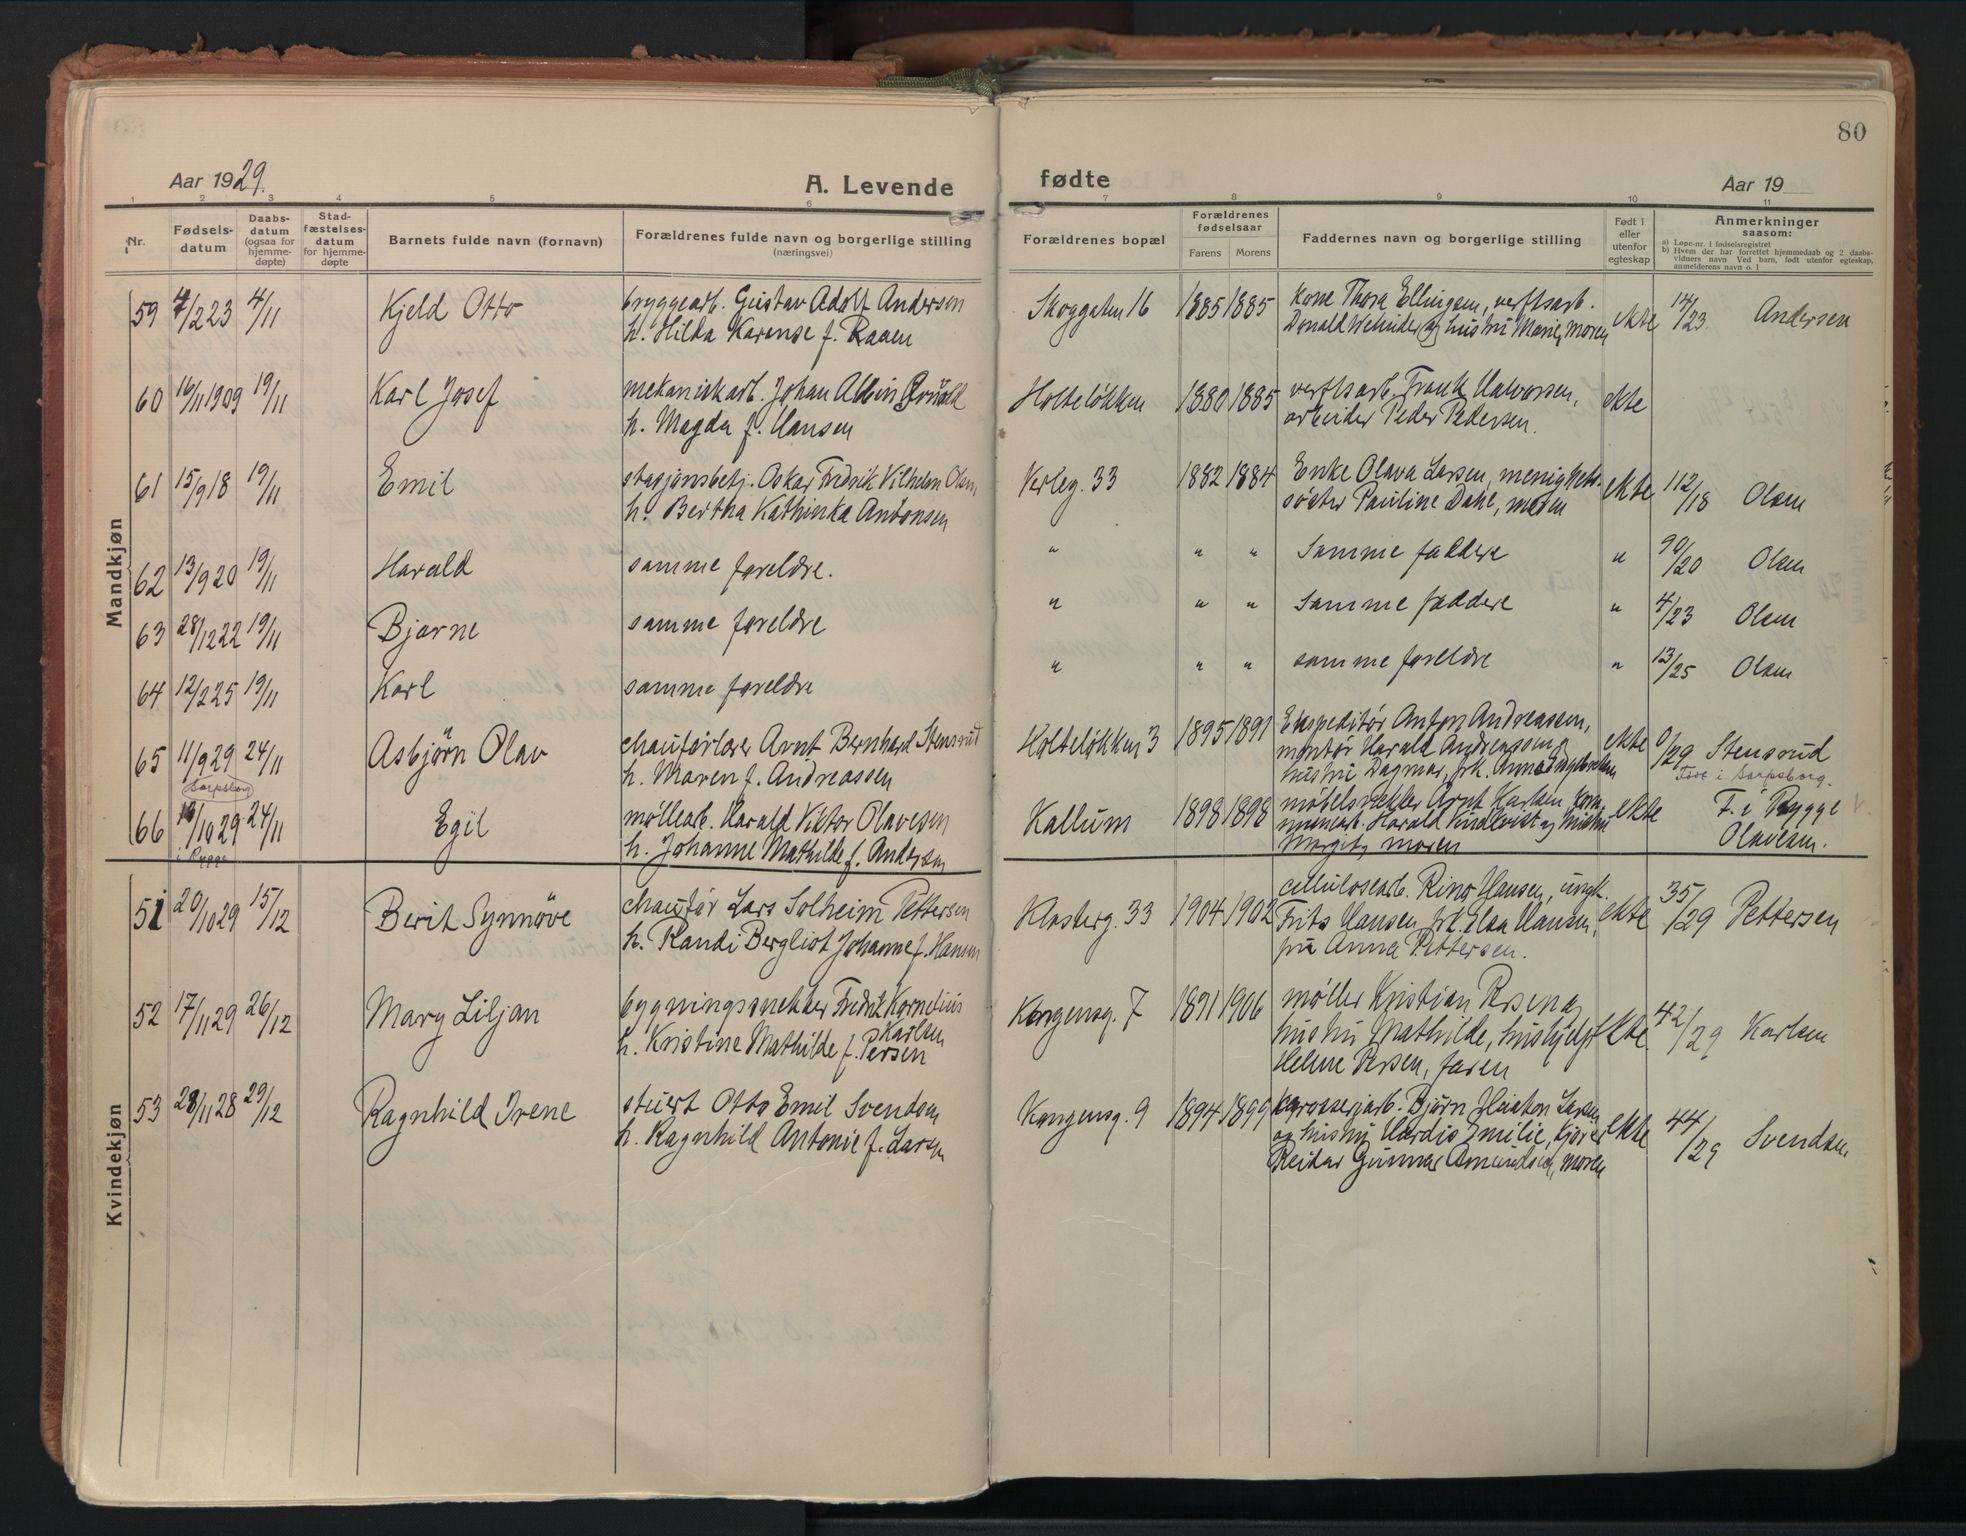 80
Aar 1929.
A. Levende
fødte
Aar 19
1 2 3 4 5 6 7 8 9 10 11
Nr.
Fødsels-
datum
Daabs-
datum
(ogsaa for
hjemme-
døpte)
Stad-
fæstelses-
datum
for hjemme-
døpte
Barnets fulde navn (fornavn)
Forældrenes fulde navn og borgerlige stilling
(næringsvei)
Forældrenes bopæl
Forældrenes
fødselsaar
Farens Morens
Faddernes navn og borgerlige stilling
Født i
eller
utenfor
egteskap
Anmerkninger
saasom:
a) Løpe-nr. i fødselsregistret
b) Hvem der har forrettet hjemmedaab og 2 daabs-
vidners navn Ved barn, født utenfor egteskap,
anmelderens navn o. l
Mandkjøn
59 4/2 23 4/11 Kjeld Otto bryggearb. Gustav Adolf Andersen
h. Hilda Karense f. Raaen
Skoggaten 16 1885 1885 Kone Thora Ellingsen, verftsarb.
Donald og hustru Marie, moren
ekte 14/23 Andersen
60 16/11 1909 19/11 Karl Josef mekaniskarb. Johan Albin
h. Magda f. Hansen
Holteløkken 1880 1885 verftsarb. Frank Halvorsen,
arbeider Peder Pedersen.
ekte
61 15/9 18 19/11 Emil stasjonsbetj. Oskar Fredrik Vilhelm Olsen
h. Bertha Kathinka Antonsen
Verleg. 33 1882 1884 Enke Olava Larsen, menighets-
søster Pauline Dahl, moren
ekte 112/18 Olsen
62 13/9 20 19/11 Harald samme foreldre. " " " Samme faddere " 90/20 Olsen
63 28/12 22 19/11 Bjarne samme foreldre " " " Samme faddere " 4/23 Olsen
64 12/2 25 19/11 Karl samme foreldre " " " samme foreldre " 13/25 Olsen
65 11/9 29 24/11 Asbjörn Olav chauførlærer Arnt Bernhard Stensrud
Sarpsborg
h. Maren f. Andreassen
Holteløkken 3 1895 1891 Ekspeditør Anton Andreassen,
montør Harald Andreassen og
hustru Dagmar, frk. Anna
ekte 0/29 Stensrud
Født i Sarpsborg.
66 /10 29 24/11 Egil møllearb. Harald Viktor Olavesen
i Rygge
h. Johanne Mathilde f. Andersen
Kallum 1898 1898 møbelsnekker Arnt Karlsen,
Harald Lindkvist og hustru
Margit, moren
ekte F. i Rygge
Olavesen.
Kvindekjøn
51 20/10 29 15/12 Berit Synnöve chauför Lars Solheim Pettersen
h. Randi Bergliot Johanne f. Hansen
Kladberg. 33 1904 1902 cellulosearb. Rino Hansen, ungk.
Frits Hansen, frk. Elsa Hansen,
fru Anna Pettersen.
ekte 35/29 Pettersen
52 17/11 29 26/12 Mary Liljan bygningssnekker Fredrik Kornelius
Karlsen
h. Kristine Mathilde f. Persen
Kongensg. 7 1891 1906 møller Kristian Persen og
hustru Mathilde, hushjelp
Helene Persen, faren
ekte. 42/29 Karlsen
53 28/11 28 29/12 Ragnhild Irene stuert Otto Emil Svendsen
h. Ragnhild Antonie f. Larsen
Kongensg. 9 1894 1899 karosseriarb. Bjørn Larsen
og hustru Hardis Emilie, kjører
Reidar Gunnar Amundsen, moren
ekte 44/29 Svendsen.